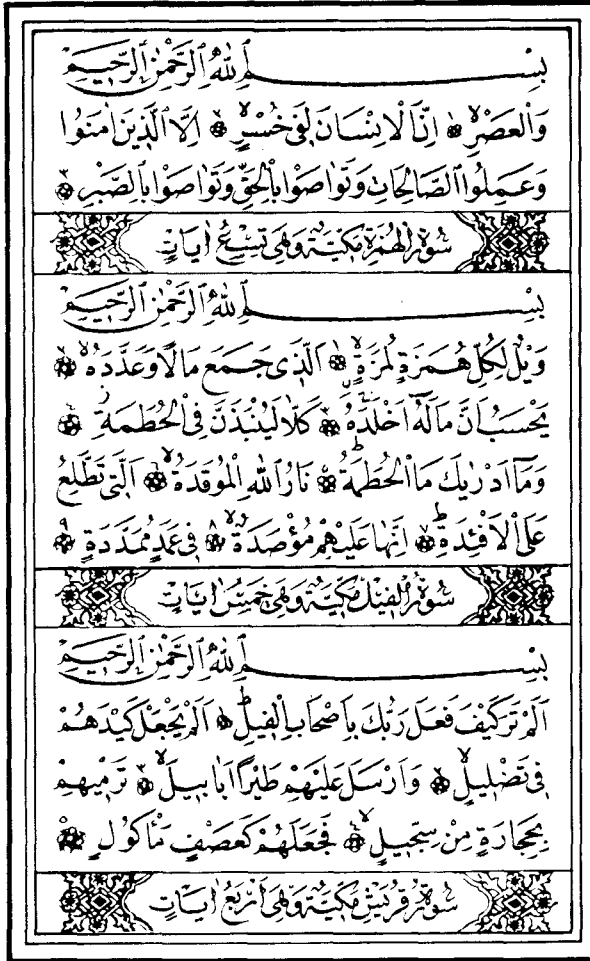 بِسْمِ ٱللّٰهِ ٱلرَّحْمٰنِ ٱلرَّحِيمِ
وَالْعَصْرِۙ ١ اِنَّ الْاِنْسَانَ لَفٖى خُسْرٍۙ ٢ اِلَّا الَّذٖينَ اٰمَنُوا
وَعَمِلُوا الصَّالِحَاتِ وَتَوَاصَوْا بِالْحَقِّ وَتَوَاصَوْا بِالصَّبْرِ ٣
سُورَةُ الْهُمَزَةِ مَكِّيَّةٌ وَهِىَ تِسْعُ اٰيَاتٍ
بِسْمِ ٱللّٰهِ ٱلرَّحْمٰنِ ٱلرَّحِيمِ
وَيْلٌ لِكُلِّ هُمَزَةٍ لُمَزَةٍۙ ١ اَلَّذٖى جَمَعَ مَالًا وَعَدَّدَهُۙ ٢
يَحْسَبُ اَنَّ مَالَهُٓ اَخْلَدَهُۚ ٣ كَلَّا لَيُنْبَذَنَّ فِى الْحُطَمَةِۘ ٤
وَمَٓا اَدْرٰيكَ مَا الْحُطَمَةُؕ ٥ نَارُ اللّٰهِ الْمُوقَدَةُۙ ٦ اَلَّتٖى تَطَّلِعُ
عَلَى الْاَفْـِٔدَةِؕ ٧ اِنَّهَا عَلَيْهِمْ مُؤْصَدَةٌۙ ٨ فٖى عَمَدٍ مُمَدَّدَةٍ ٩
سُورَةُ الْفٖيلِ مَكِّيَّةٌ وَهِىَ خَمْسُ اٰيَاتٍ
بِسْمِ ٱللّٰهِ ٱلرَّحْمٰنِ ٱلرَّحِيمِ
اَلَمْ تَرَ كَيْفَ فَعَلَ رَبُّكَ بِاَصْحَابِ الْفٖيلِؕ ١ اَلَمْ يَجْعَلْ كَيْدَهُمْ
فٖى تَضْلٖيلٍۙ ٢ وَاَرْسَلَ عَلَيْهِمْ طَيْرًا اَبَابٖيلَۙ ٣ تَرْمٖيهِمْ
بِحِجَارَةٍ مِنْ سِجّٖيلٍۙ ٤ فَجَعَلَهُمْ كَعَصْفٍ مَأْكُولٍ ٥
سُورَةُ قُرَيْشٍ مَكِّيَّةٌ وَهِىَ اَرْبَعُ اٰيَاتٍ